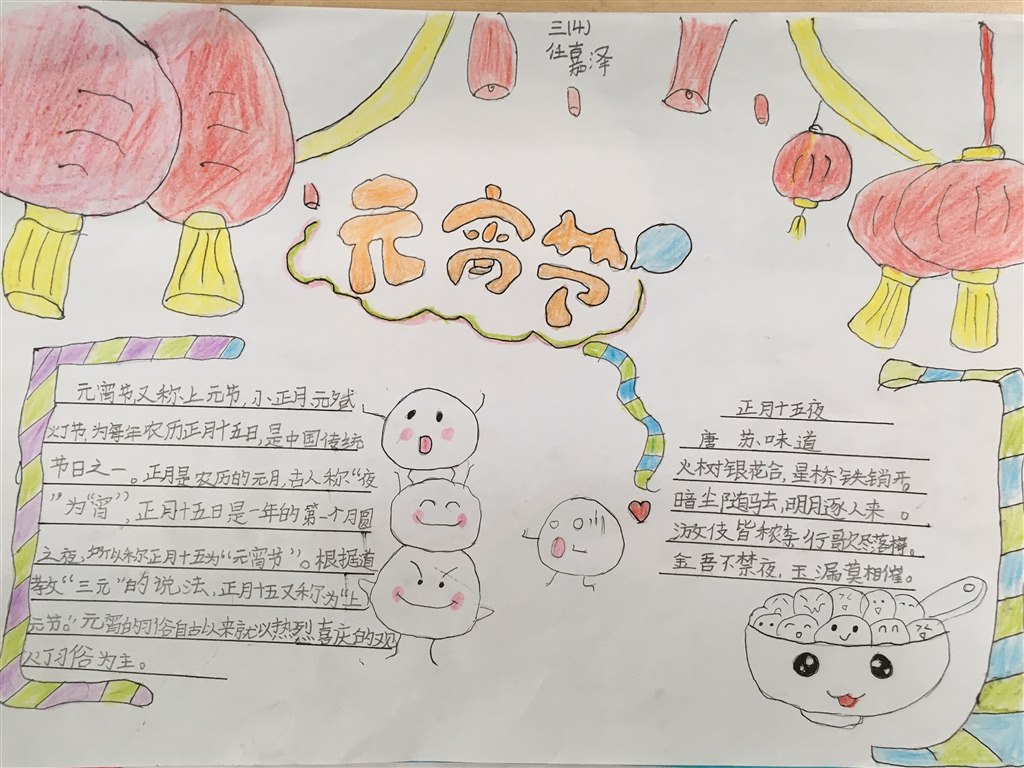 三(4)
任嘉泽
元宵节
元宵节,又称上元节,小正月、元宵
灯节,为每年农历正月十五日,是中国传统
节日之一。正月是农历的元月,古人称“夜
”为“宵”,正月十五日是一年的第一个月圆
之夜,所以称正月十五为“元宵节”。根据道
教“三元”的说法,正月十五又称为“上
元节”。元宵的习俗自古以来就以热烈喜庆的观
灯习俗为主。
正月十五夜
唐 苏味道
火树银花合,星桥铁锁开。
暗尘随马去,明月逐人来。
游妓皆秾李,行歌尽落梅。
金吾不禁夜,玉漏莫相催。